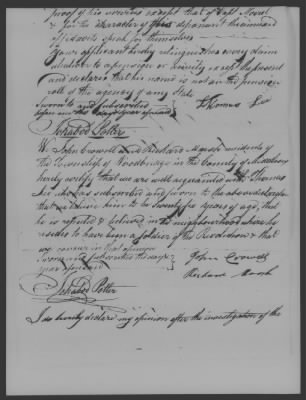 proof of his services except that of Capt Morial
for the character of this deponent the annexed
affidavits speak for themselves
Your applicant hereby relinquishes every claim
whatever to a pension or annuity except the present
and declares that his name is not on the pension
roll of the agency of any State
Sworn to and subscribed
open and the day year aforesaid Thomas
Ichabod Potter
We John Crowell and Richard Marsh residents of
the Township of Woodbridge in the County of Middlesex
hereby certify that we are well acquainted with Thomas
who has subscribed and sworn to the above declaration
that we believe him to be Seventy five years of age, that
he is reputed & believed in the neighbourhood where he
resides to have been a soldier of the Revolution & that
we concur in that opinion
Sworn and subscribed the day &
year aforesaid John Crowell
Richard Marsh
Ichabod Potter
I do hereby declare my opinion after the investigation of the